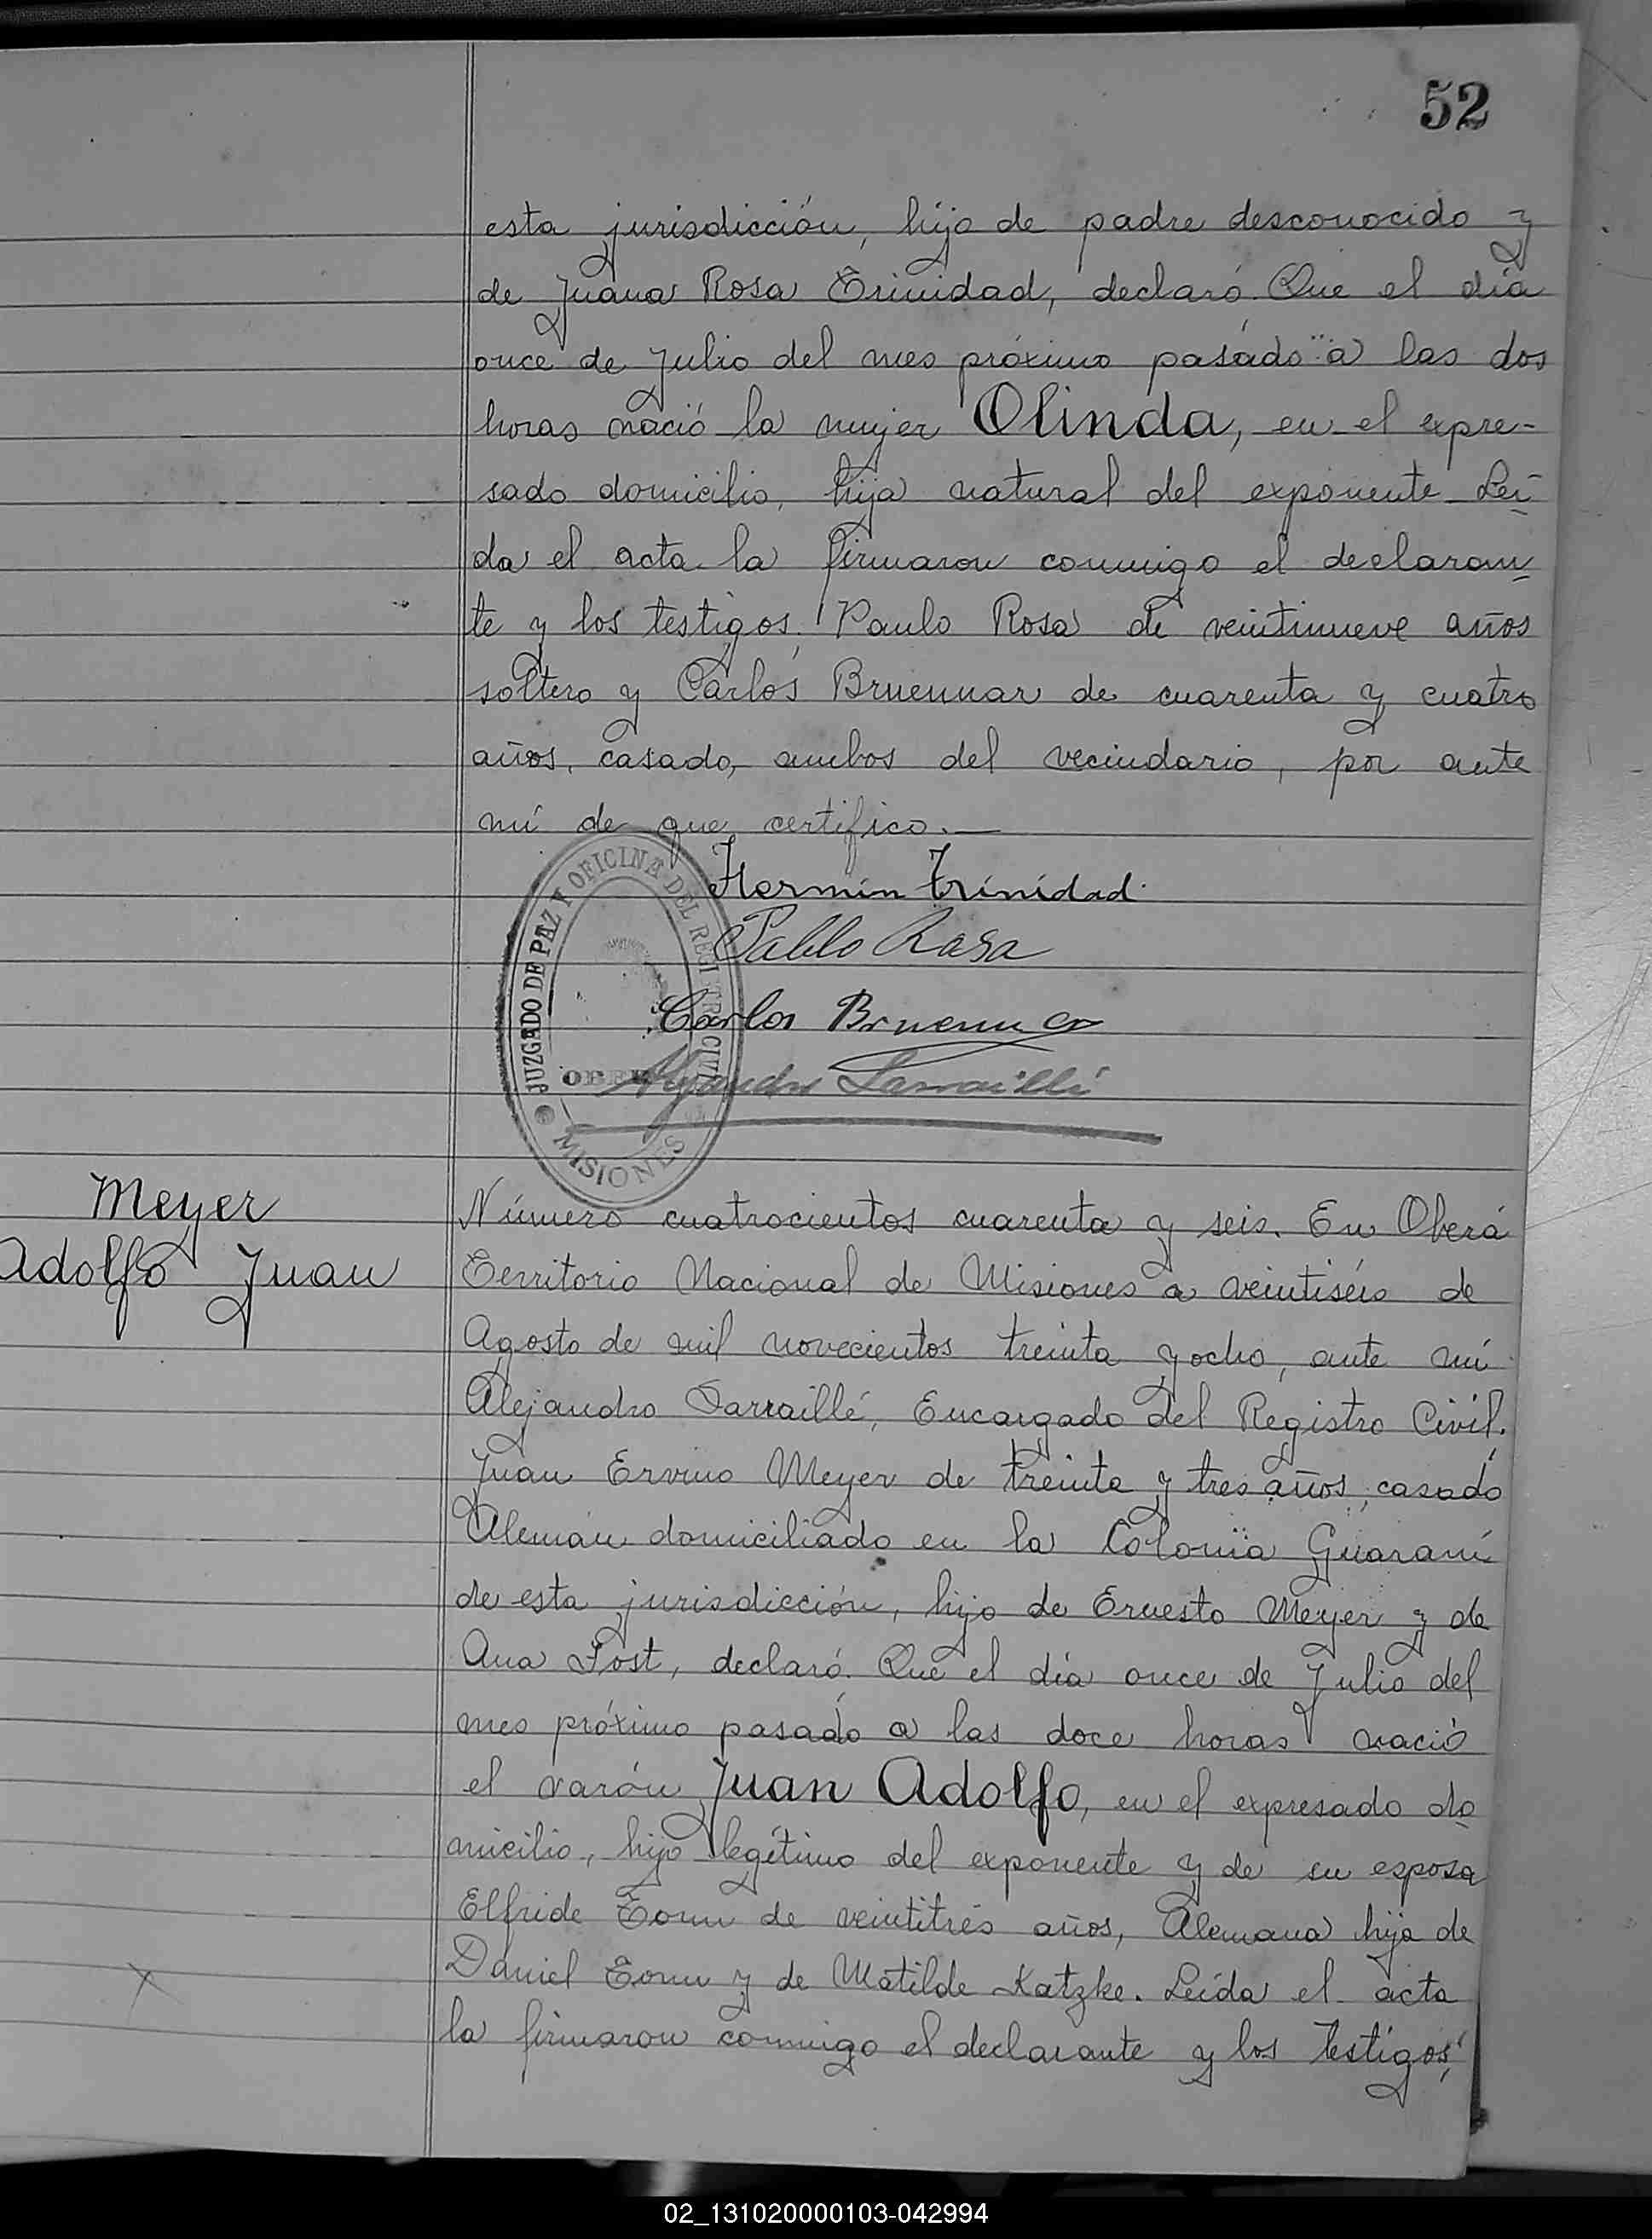 52
esta jurisdicción, hijo de padre desconocido y
de Juana Rosa Trinidad, declaró. Que el día
once de Julio del mes próximo pasado a las dos
horas nació la mujer Olinda, en el expre-
sado domicilio, hija natural del exponente. Leí
da el acta la firmaron conmigo el declaran
te y los testigos, Paulo Rosa de veintinueve años
soltero y Carlos Bruennar de cuarenta y cuatro
años, casado, ambos del vecindario, por ante
mí de que certifico.
Hermin Trinidad
Pablo Rosa
Carlos
JUZGADO DE PAZ Y OFICINA DEL REGISTRO CIVIL
OBERÁ
MISIONES
Meyer
Adolfo Juan
Número cuatrocientos cuarenta y seis. En Oberá
Territorio Nacional de Misiones a veintiséis de
Agosto de mil novecientos treinta y ocho, ante mí
Alejandro Larraillé, Encargado del Registro Civil.
Juan Ervino Meyer de treinta y tres años, casado
Alemán domiciliado en la Colonia Guaraní
de esta jurisdicción, hijo de Ernesto Meyer y de
Ana Post, declaró. Que el día once de Julio del
mes próximo pasado a las doce horas nació
el varón Juan Adolfo, en el expresado do
micilio, hijo legítimo del exponente y de su esposa
Elfride Tonn de veintitrés años, Alemana hija de
Daniel Tonn y de Matilde Katzke. Leída el acta
la firmaron conmigo el declarante y los testigos,
02_131020000103-042994